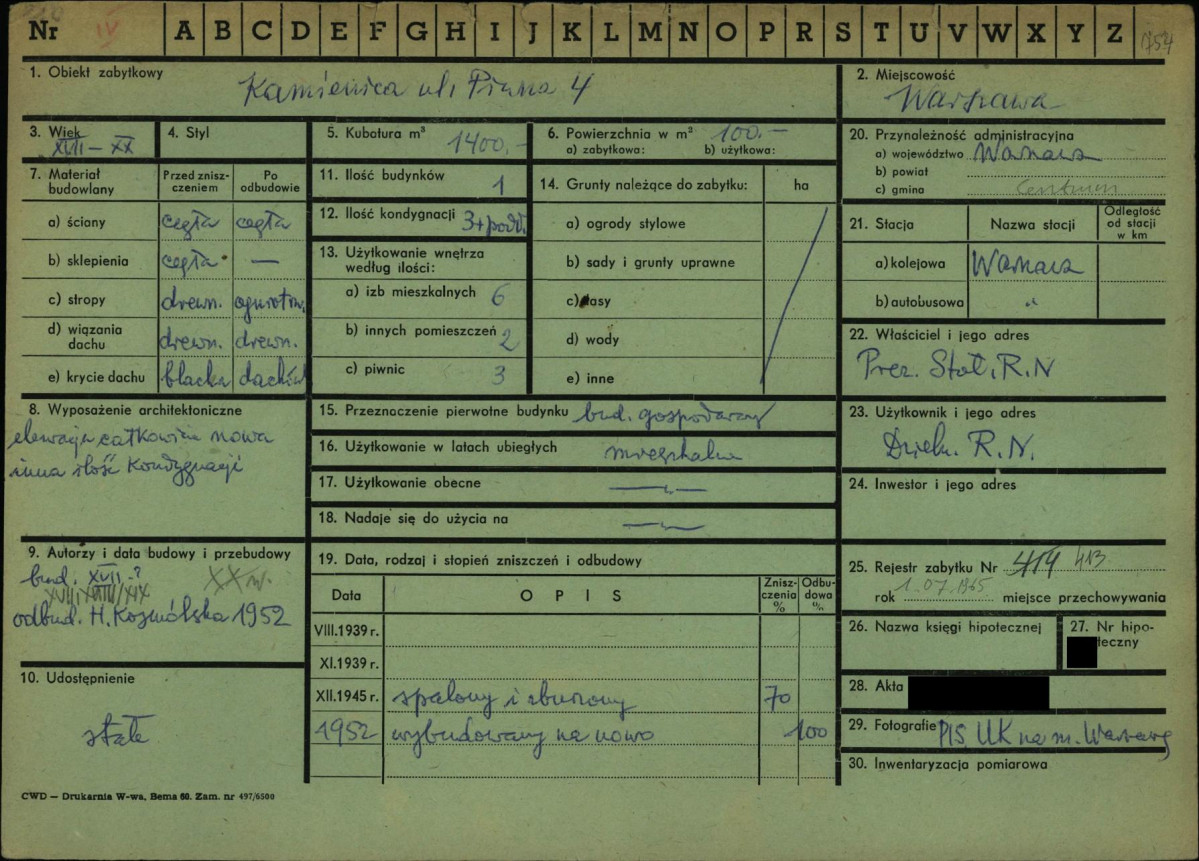 Nr IV A B C D E F G H I J K L M N O P R S T U V W X Y Z 1754
1. Obiekt zabytkowy Kamienica ul. Piwna 4
2. Miejscowość Warszawa
3. Wiek XVII – XX
4. Styl
5. Kubatura m³ 1400,-
6. Powierzchnia w m² 100.-
a) zabytkowa: b) użytkowa:
7. Materiał budowlany
Przed zniszczeniem
Po odbudowie
a) ściany cegła cegła
b) sklepienia cegła —
c) stropy drewn. ogniotrw.
d) wiązania dachu drewn. drewn.
e) krycie dachu blacha dachów
8. Wyposażenie architektoniczne
elewacja całkowicie nowa
inna ilość kondygnacji
9. Autorzy i data budowy i przebudowy
bud. XVII-? XX w.
XVII, XVIII/XIX
odbud. H. Kosmólska 1952
10. Udostępnienie
stałe
11. Ilość budynków 1
12. Ilość kondygnacji 3+podd.
13. Użytkowanie wnętrza
według ilości:
a) izb mieszkalnych 6
b) innych pomieszczeń 2
c) piwnic 3
14. Grunty należące do zabytku: ha
a) ogrody stylowe
b) sady i grunty uprawne
c) lasy
d) wody
e) inne
15. Przeznaczenie pierwotne budynku bud. gospodarczy
16. Użytkowanie w latach ubiegłych mieszkalne
17. Użytkowanie obecne —„—
18. Nadaje się do użycia na —„—
19. Data, rodzaj i stopień zniszczeń i odbudowy
Data OPIS Zniszczenia % Odbudowa %
VIII.1939 r.
XI.1939 r.
XII.1945 r. spalony i zburzony 70
1952 wybudowany na nowo 100
20. Przynależność administracyjna
a) województwo Warszawa
b) powiat
c) gmina Centrum
21. Stacja Nazwa stacji Odległość od stacji w km
a) kolejowa Warszawa
b) autobusowa „
22. Właściciel i jego adres
Prez. Stoł. R.N
23. Użytkownik i jego adres
Dzieln. R.N.
24. Inwestor i jego adres
25. Rejestr zabytku Nr 414 413
rok 1.07.1965 miejsce przechowywania
26. Nazwa księgi hipotecznej
27. Nr hipoteczny
28. Akta
29. Fotografie PIS, UK na m. Warszawę
30. Inwentaryzacja pomiarowa
CWD — Drukarnia W-wa, Bema 60. Zam. nr 497/6500